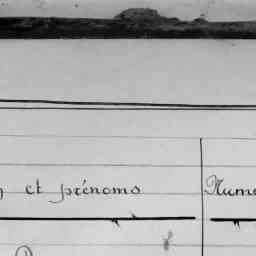 et prénoms Numé